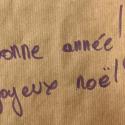 bonne année!
joyeux noël!